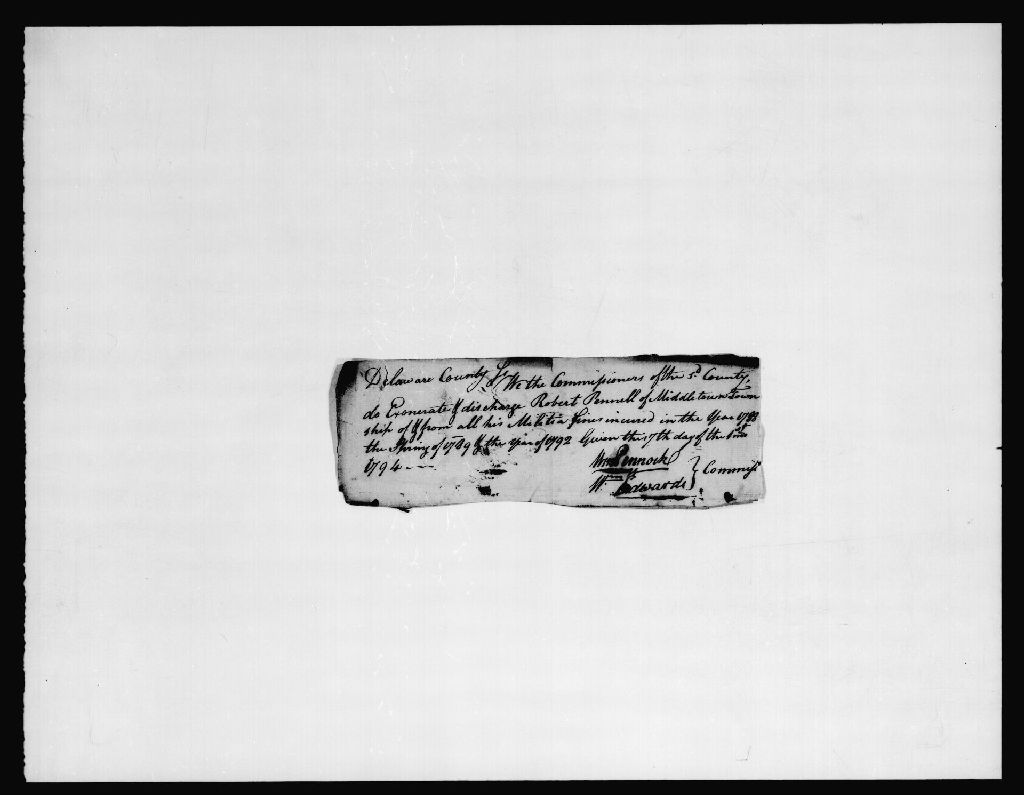 Delaware County Ss We the Commissioners of the sd County,
do Exonerate & discharge Robert Pennell of Middletown Town
ship of & from all his Militia fines incured in the Year 1788
the Spring of 1789 & the Year of 1792 Given the 17th day of the
1794 - - -
Wm Pennock } Commissrs
Wm Edwards